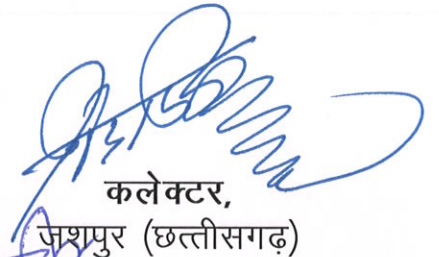 कलेक्टर,
जशपुर (छत्तीसगढ़)